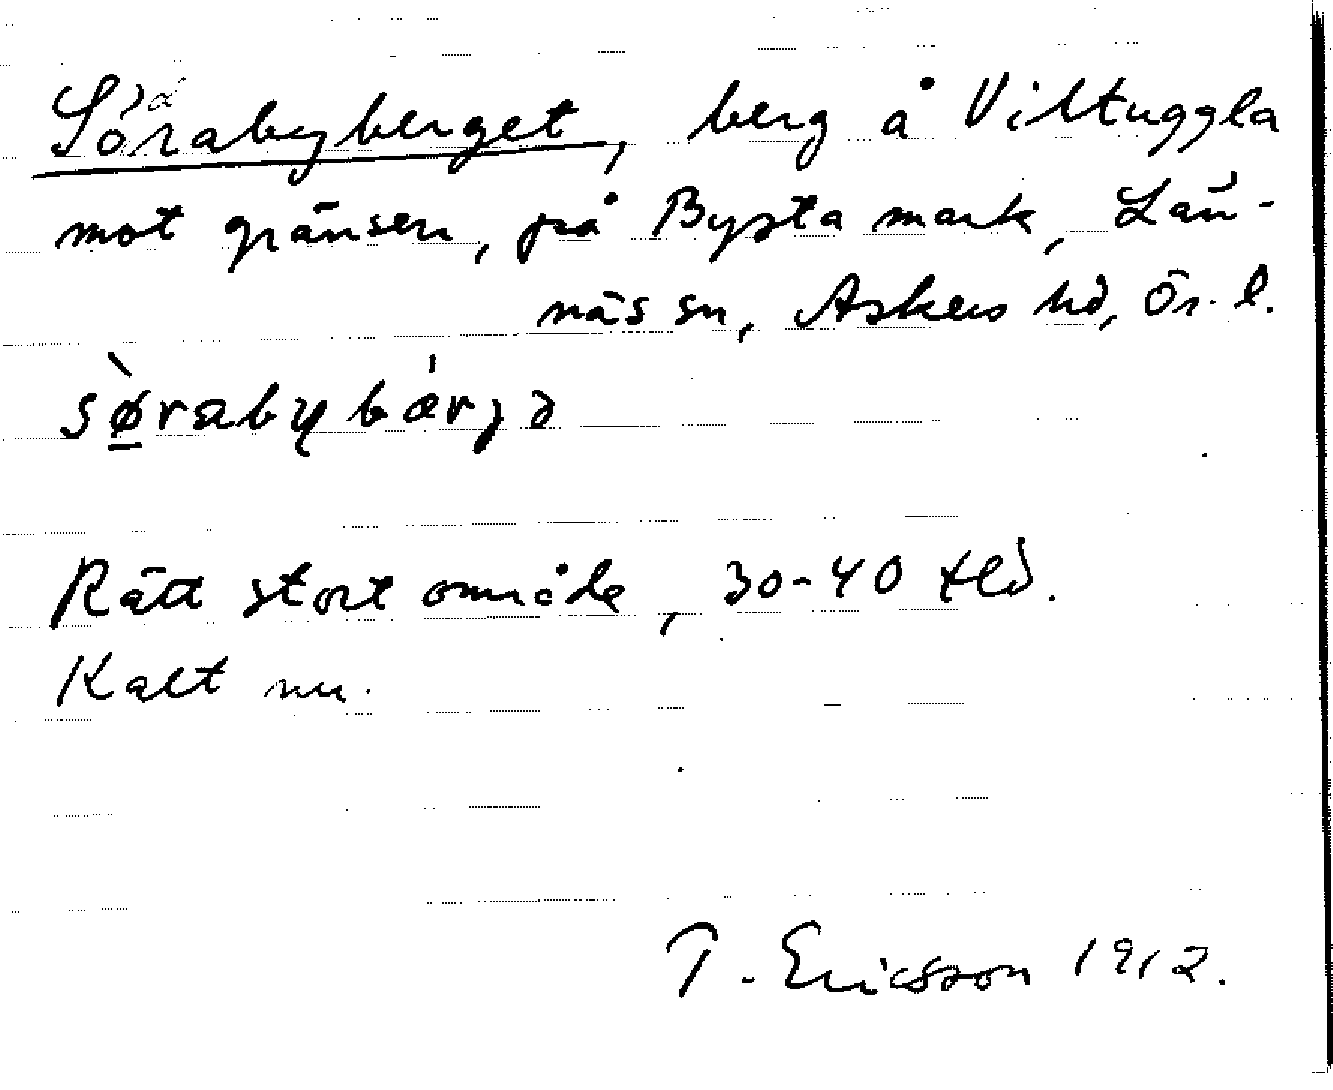 Sörabyberget, berg å Viltuggla
mot gränsen, på Bysta mark, Län-
näs sn, Askers hd, Ör. l.
sø̀rabybár
Rätt stort område, 30-40 tld.
Kalt nu.
T. Ericsson 1912.